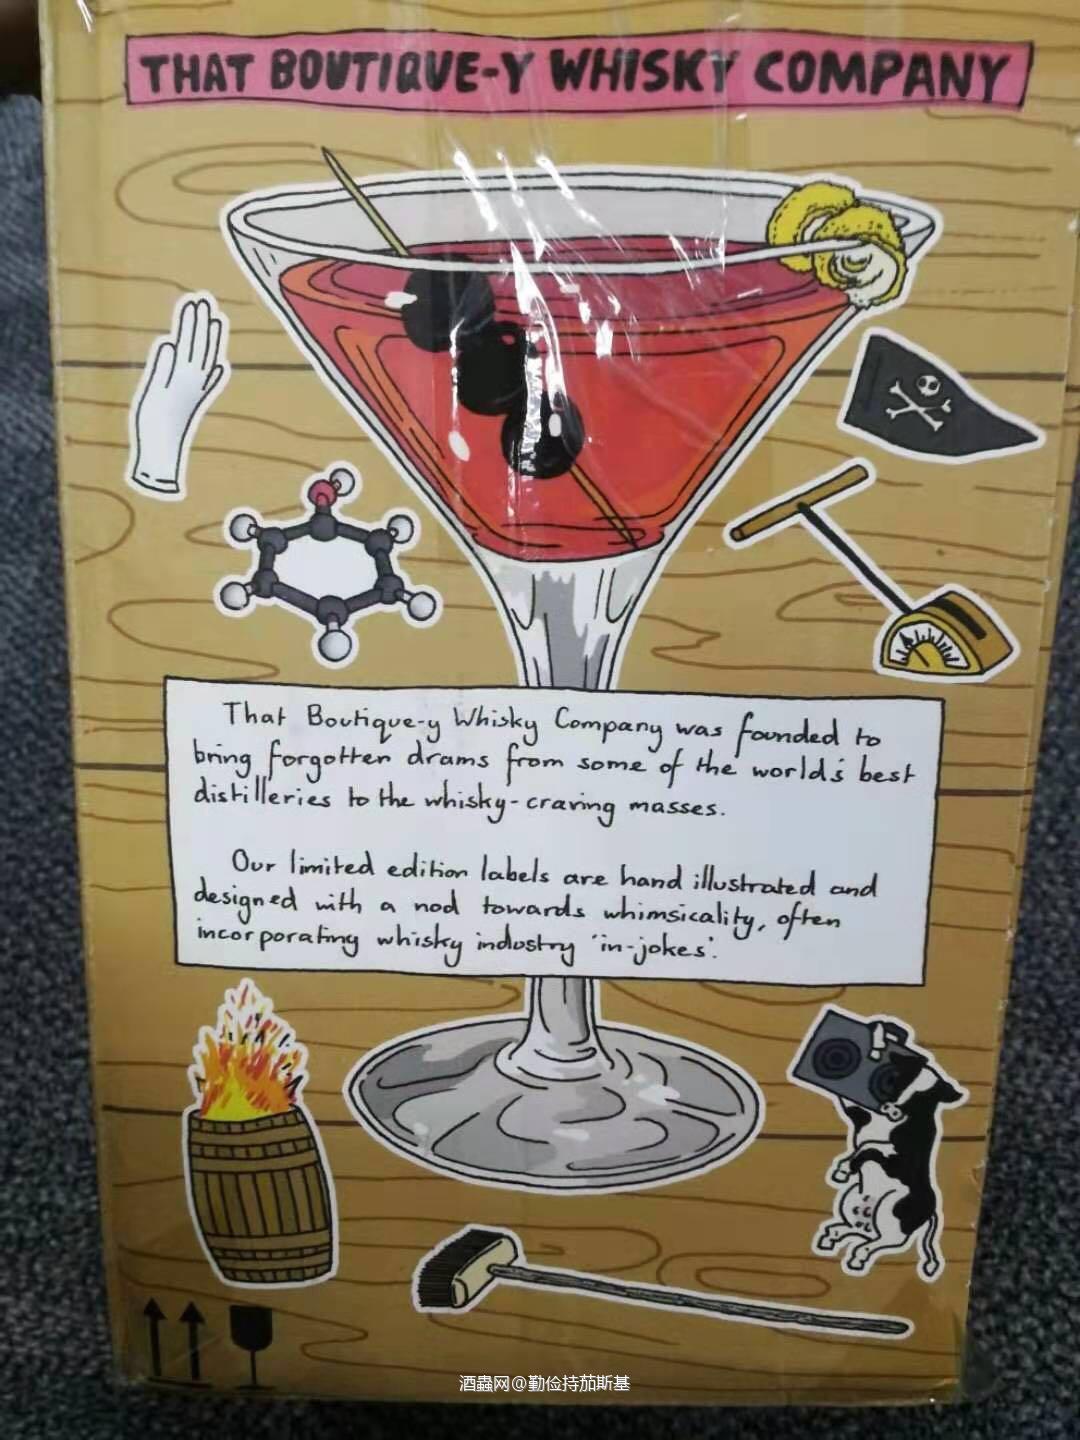 THAT BOUTIQUE-Y WHISKY COMPANY
That Boutique-y Whisky Company was founded to
bring forgotten drams from some of the world's best
distilleries to the whisky-craving masses.
Our limited edition labels are hand illustrated and
designed with a nod towards whimsicality, often
incorporating whisky industry 'in-jokes'.
酒蟲网@勤俭持茄斯基